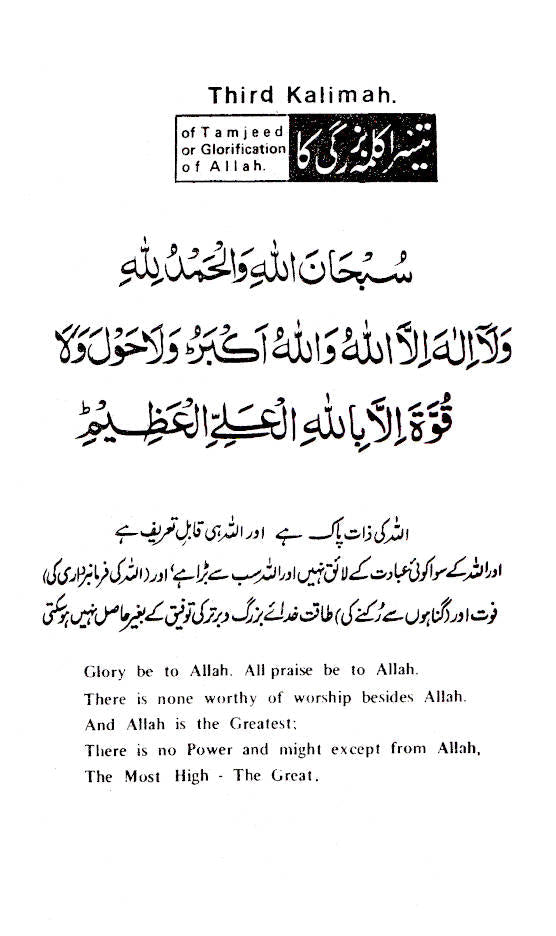 Third Kalimah.
of Tamjeed
or Glorification
of Allah.
تیسرا کلمہ بزرگی کا
سُبْحَانَ اللهِ وَالْحَمْدُ لِلّٰهِ
وَلَآ اِلٰهَ اِلَّا اللهُ وَاللهُ اَكْبَرُ وَلَا حَوْلَ وَلَا
قُوَّةَ اِلَّا بِاللهِ الْعَلِيِّ الْعَظِيْمِؕ
اللہ کی ذات پاک ہے اور اللہ ہی قابلِ تعریف ہے
اور اللہ کے سوا کوئی عبادت کے لائق نہیں اور اللہ سب سے بڑا ہے' اور (اللہ کی فرمانبرداری کی)
قوت اور (گناہوں سے رُکنے کی) طاقت خدائے بزرگ و برتر کی توفیق کے بغیر حاصل نہیں ہوسکتی
Glory be to Allah. All praise be to Allah.
There is none worthy of worship besides Allah.
And Allah is the Greatest;
There is no Power and might except from Allah,
The Most High - The Great.